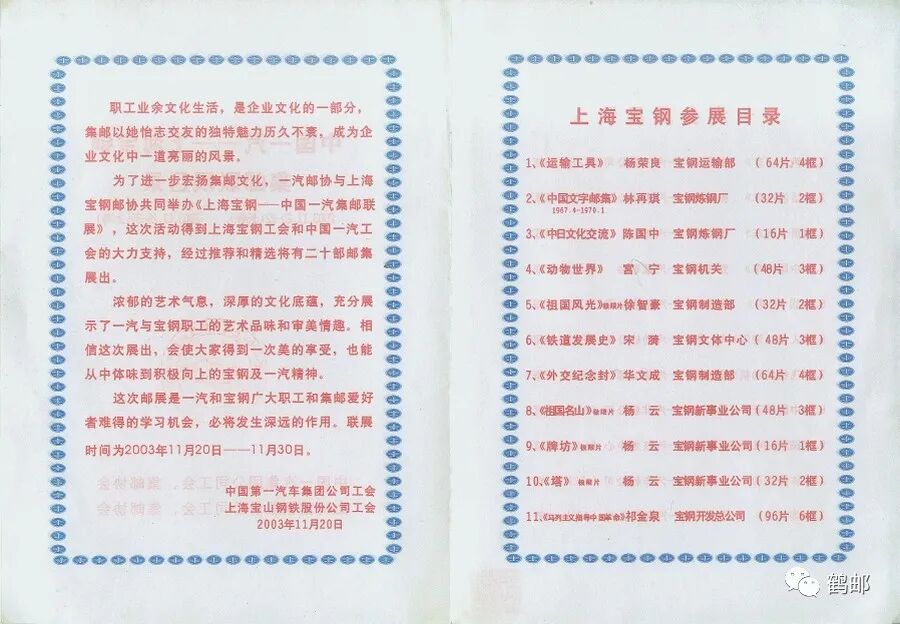 职工业余文化生活，是企业文化的一部分，
集邮以她怡志交友的独特魅力历久不衰，成为企
业文化中一道亮丽的风景。
为了进一步宏扬集邮文化，一汽邮协与上海
宝钢邮协共同举办《上海宝钢——中国一汽集邮联
展》，这次活动得到上海宝钢工会和中国一汽工
会的大力支持，经过推荐和精选将有二十部邮集
展出。
浓郁的艺术气息，深厚的文化底蕴，充分展
示了一汽与宝钢职工的艺术品味和审美情趣。相
信这次展出，会使大家得到一次美的享受，也能
从中体味到积极向上的宝钢及一汽精神。
这次邮展是一汽和宝钢广大职工和集邮爱好
者难得的学习机会，必将发生深远的作用。联展
时间为2003年11月20日——11月30日。
中国第一汽车集团公司工会
上海宝山钢铁股份公司工会
2003年11月20日
上海宝钢参展目录
1、《运输工具》 杨荣良 宝钢运输部 (64片 4框)
2、《中国文字邮集》 林再琪 宝钢炼钢厂 (32片 2框)
1967.4-1970.1
3、《中日文化交流》 陈国中 宝钢炼钢厂 (16片 1框)
4、《动物世界》 宫 宁 宝钢机关 (48片 3框)
5、《祖国风光》极限片 徐智豪 宝钢制造部 (32片 2框)
6、《铁道发展史》 宋 漪 宝钢文体中心 (48片 3框)
7、《外交纪念封》 华文成 宝钢制造部 (64片 4框)
8、《祖国名山》极限片 杨 云 宝钢新事业公司 (48片 3框)
9、《牌坊》极限片 杨 云 宝钢新事业公司 (16片 1框)
10、《塔》 极限片 杨 云 宝钢新事业公司 (32片 2框)
11、《马列主义指导中国革命》 祁金泉 宝钢开发总公司 (96片 6框)
鹤邮